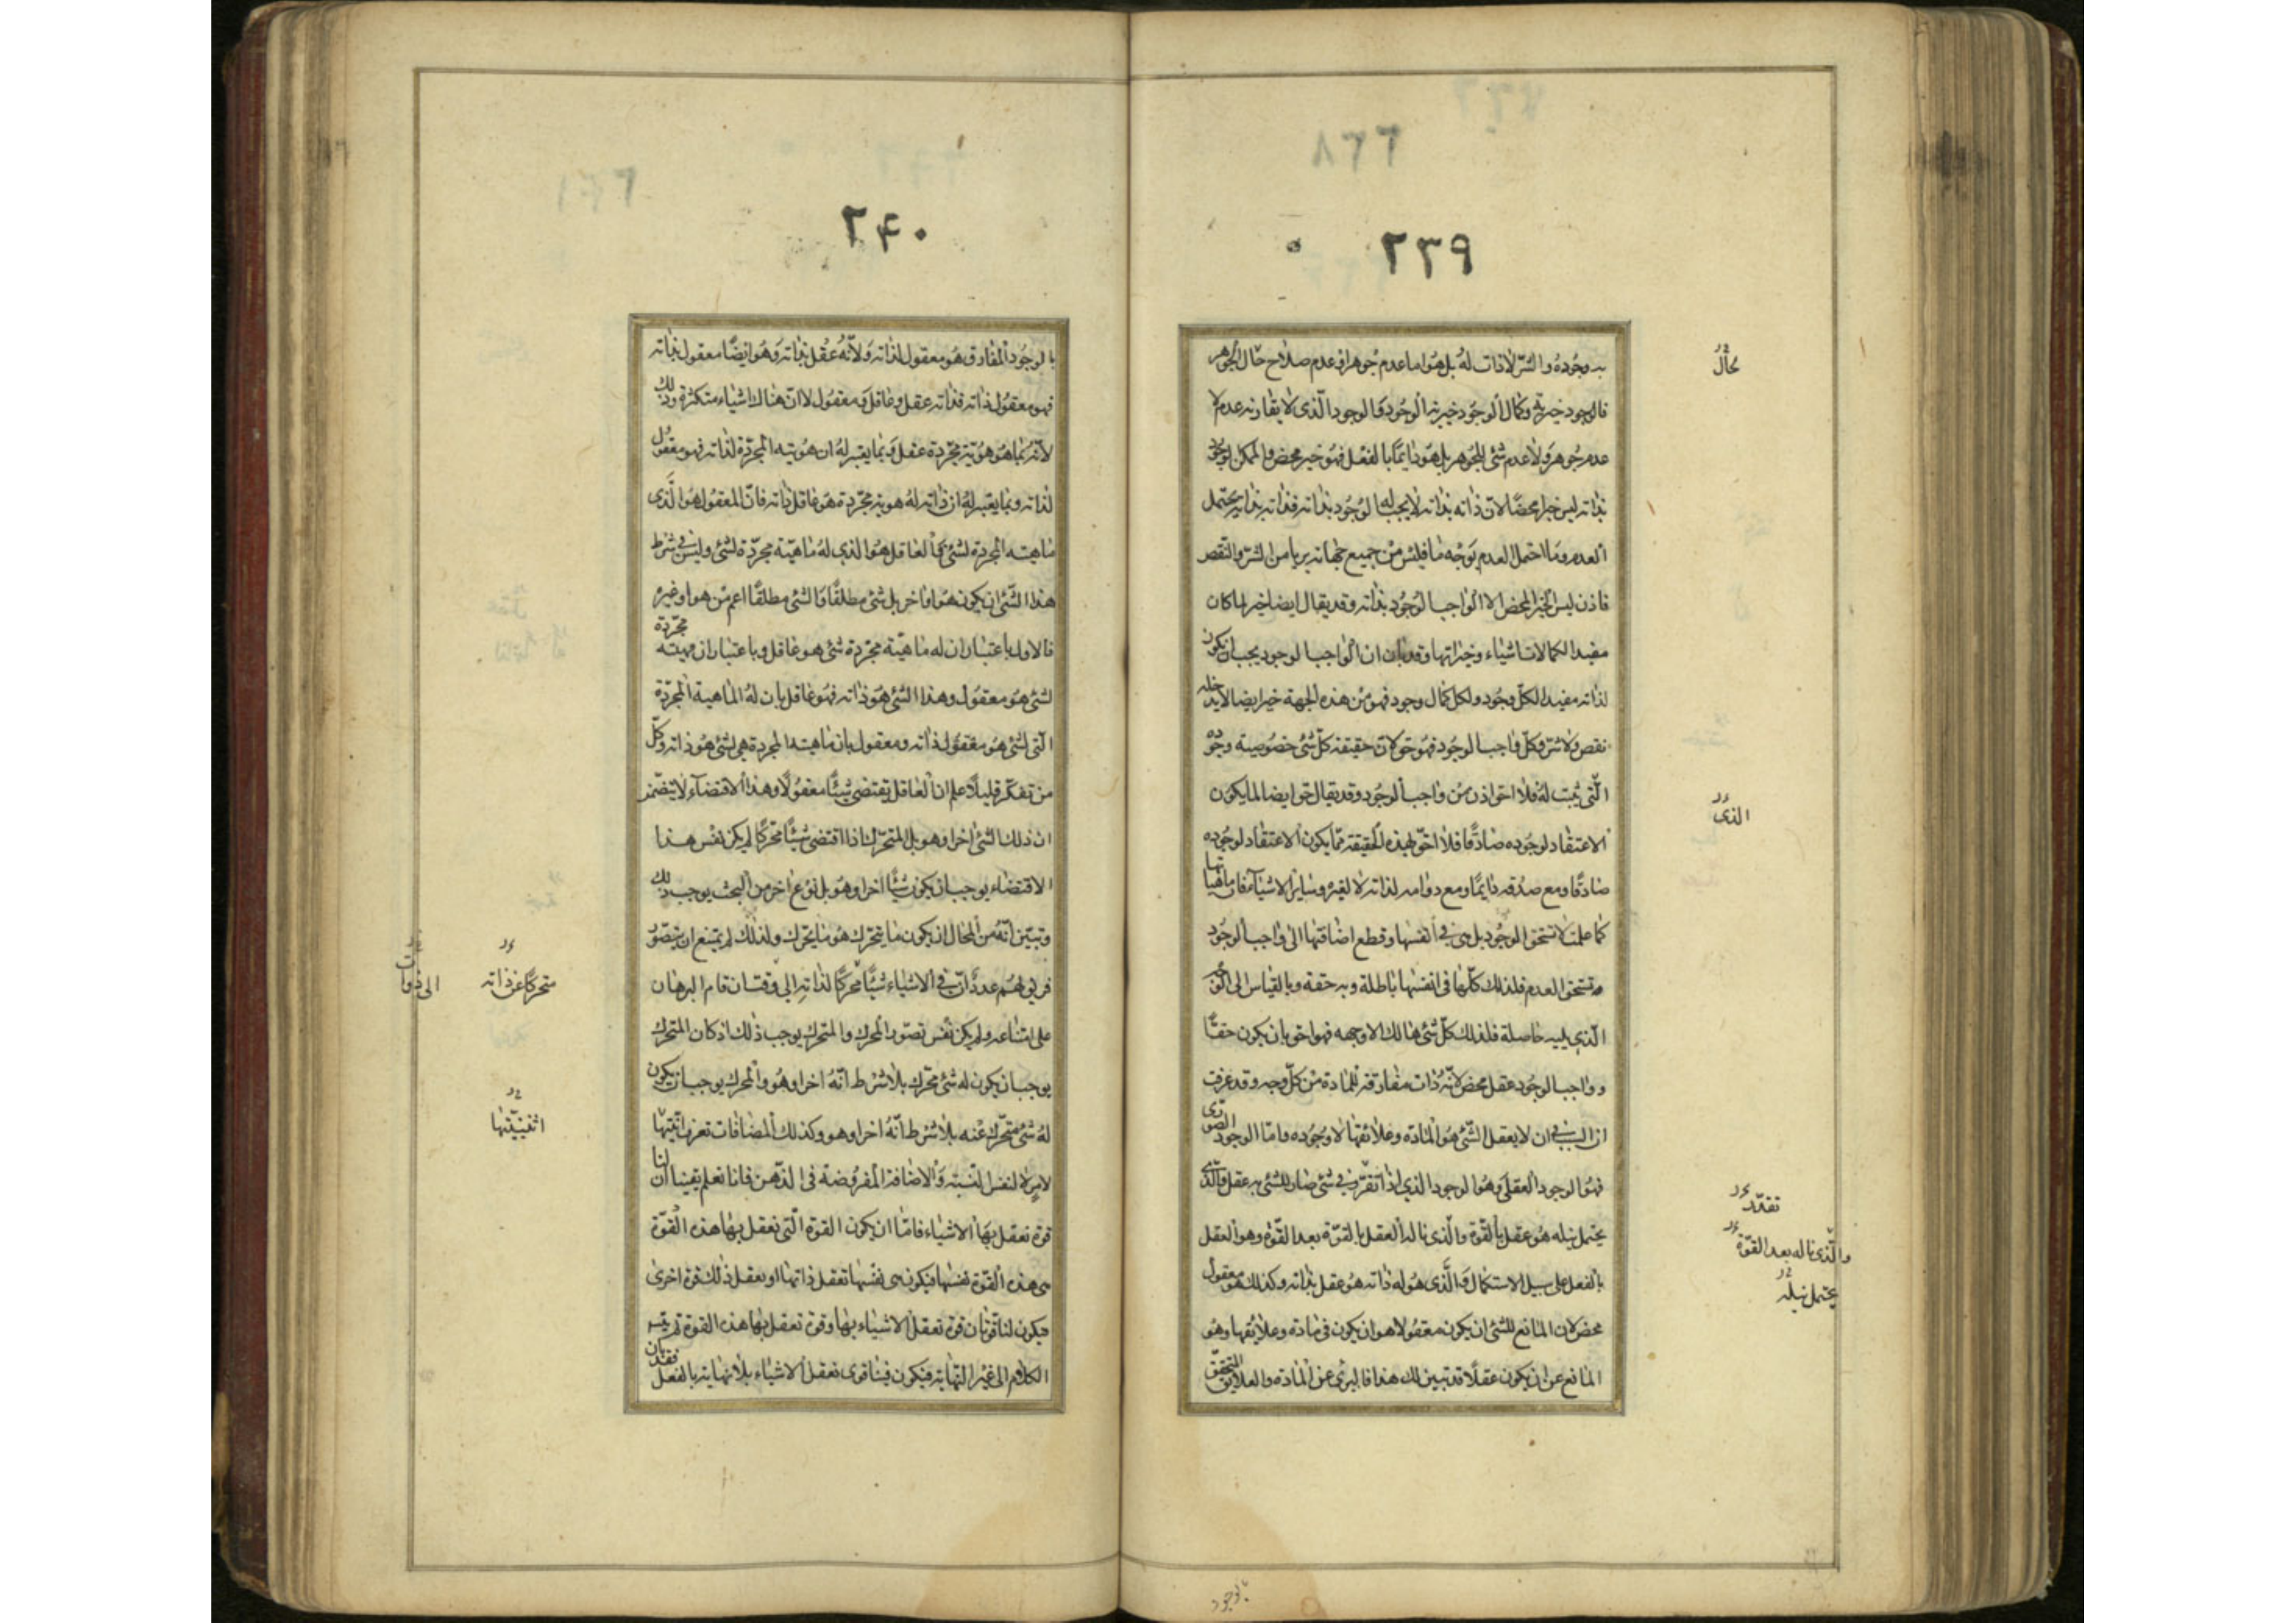 ٢٣٩
به وجوده والشرّ لا ذات له بل هو اما عدم جوهر او عدم صلاح حال الجوهر
فالوجود خيرية وكمال الوجود خيرية الوجود والوجود الّذى لا يقارنه عدم لا
عدم جوهر ولا عدم شئ للجوهر بل هو دايمًا بالفعل فهو خير محض والممكن الوجود
بذاته ليس خيرا محضًا لانّ ذاته بذاته لا يجب له الوجود بذاته فذاته بذاته يحتمل
العدم وما احتمل العدم بوجه ما فليس من جميع جهاته بريا من الشرّ والنقص
فاذن ليس الخير المحض الا الواجب الوجود بذاته وقد يقال ايضا خير لما كان
مفيدا لكمالات اشياء وخيراتها وقد بان ان الواجب الوجود يجب ان يكون
لذاته مفيدا لكلّ وجود ولكل كمال وجود فهو من هذه الجهة خير ايضا لا يدخله
نقص ولا شرّ وكلّ واجب الوجود فهو حق لانّ حقيقة كلّ شئ خصوصية وجوده
الّتى ثبت له فلا احق اذن من واجب الوجود وقد يقال حق ايضا لما يكون
الاعتقاد لوجوده صادقًا فلا احقّ بهذه الحقيقة ممّا يكون الاعتقاد لوجوده
صادقًا ومع صدقه دايمًا ومع دوامه لذاته لا لغيره وساير الاشياء فان ماهياتها
كما علمت لا تستحق الوجود بل هى فى انفسها وقطع اضافتها الى واجب الوجود
تستحق العدم فلذلك كلّها فى انفسها باطلة وبه حقة وبالقياس الى الوجه
الّذى يليه حاصلة فلذلك كلّ شئ هالك الا وجهه فهو احق بان يكون حقًّا
وواجب الوجود عقل محض لانّه ذات مفارقة للمادة من كلّ وجه وقد عرفت
ان السبب فى ان لا يعقل الشّئ هو المادّة وعلائقها لا وجوده وامّا الوجود الصورى
فهو الوجود العقلى وهو الوجود الذى اذا تقرّر فى شئ صار للشئ به عقل والّذى
يحتمل نيله هو عقل بالقوّة والّذى ناله العقل بالقوّة بعد القوّة وهو العقل
بالفعل على سبيل الاستكمال والّذى هو له ذاته هو عقل بذاته وكذلك هو معقول
محض لان المانع للشئ ان يكون معقولا هو ان يكون فى مادة وعلايقها وهو
المانع عن ان يكون عقلًا قد تبين لك هذا فالبرئ عن المادّة والعلايق المتحقّق
محال
الذى
تقرّر
والّذى ناله بعد القوّة
يحتمل نيله
بالوجود
٢۴٠
بالوجود المفارق هو معقول لذاته ولانّه عقل بذاته وهو ايضًا معقول بذاته
فهو معقول ذاته فذاته عقل وعاقل ومعقول لا انّ هناك اشياء متكثرة وذلك
لانّه بما هو هويّة مجرّدة عقل وبما يعتبر له ان هويته المجرّدة لذاته فهو معقول
لذاته وبما يعتبر له ان ذاته له هوية مجرّدة هو عاقل ذاته فانّ المعقول هو الّذى
ماهيته المجردة لشئ والعاقل هو الذى له ماهيّة مجرّدة لشئ وليس فى شرط
هذا الشّئ ان يكون هو او اخر بل شئ مطلقًا والشئ مطلقًا اعم من هو او غيره
فالاول باعتبار ان له ماهيّة مجرّدة شئ هو عاقل وباعتبار ان مهيته مجرّدة
لشئ هو معقول وهذا الشّئ هو ذاته فهو عاقل بان له الماهية المجرّدة
الّتى لشئ هو معقول ذاته ومعقول بان ماهيته المجردة هى لشئ هو ذاته وكلّ
من تفكّر قليلًا علم ان العاقل يقتضى شيئًا معقولًا وهذا الاقتضاء لا يتضمّن
ان ذلك الشئ اخر او هو بل المتحرّك اذا اقتضى شيئًا محرّكًا لم يكن نفس هذا
الاقتضاء يوجب ان يكون شيئًا اخر او هو بل نوع اخر من البحث يوجب ذلك
وتبيّن انّه من المحال ان يكون ما يتحرّك هو ما يحرّك ولذلك لم يمتنع ان يتصوّر
فريق لهم عدد انّ فى الاشياء شيئًا محرّكًا لذاته الى وقت ان قام البرهان
على امتناعه ولم يكن نفس تصوّر المحرك والمتحرك يوجب ذلك اذ كان المتحرك
يوجب ان يكون له شئ محرّك بلا شرط انّه اخر او هو والمحرك يوجب ان يكون
له شئ متحرّك عنه بلا شرط انّه اخر او هو وكذلك المضافات تعرف اثنيّتها
لامر لا لنفس النّسبة والاضافة المفروضة فى الذّهن فانا نعلم يقينا ان لنا
قوة نعقل بها الاشياء فامّا ان يكون القوة الّتى نعقل بها هذه القوّة
هى هذه القوّة نفسها فيكون هى نفسها تعقل ذاتها او تعقل ذلك قوة اخرى
فيكون لنا قوّتان قوة نعقل الاشياء بها وقوة نعقل بها هذه القوة ثم يتسلسل
الكلام الى غير النّهاية فيكون فينا قوى تعقل الاشياء بلا نهاية بالفعل فقد بان
متحركًا عن ذاته
الى ذوات
اثنينيّتها